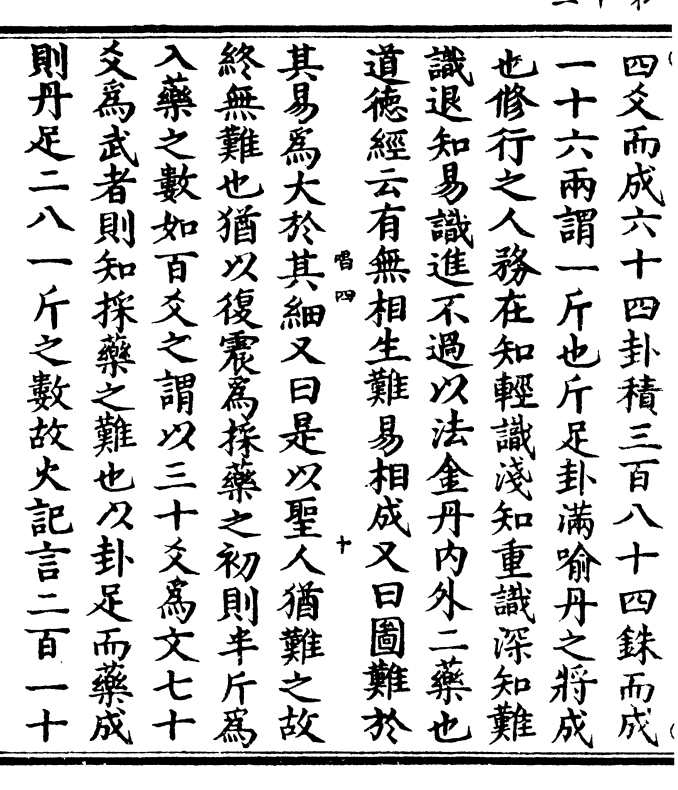 四爻而成六十四卦積三百八十四銖而成
一十六兩謂一斤也斤足卦滿喻丹之將成
也修行之人務在知輕識淺知重識深知難
識退知易識進不過以法金丹內外二藥也
道德經云有無相生難易相成又曰圖難於
唱四
十
其易爲大於其細又曰是以聖人猶難之故
終無難也猶以復震爲採藥之初則半斤爲
入藥之數如百爻之謂以三十爻爲文七十
爻爲武者則知採藥之難也以卦足而藥成
則丹足二八一斤之數故火記言二百一十